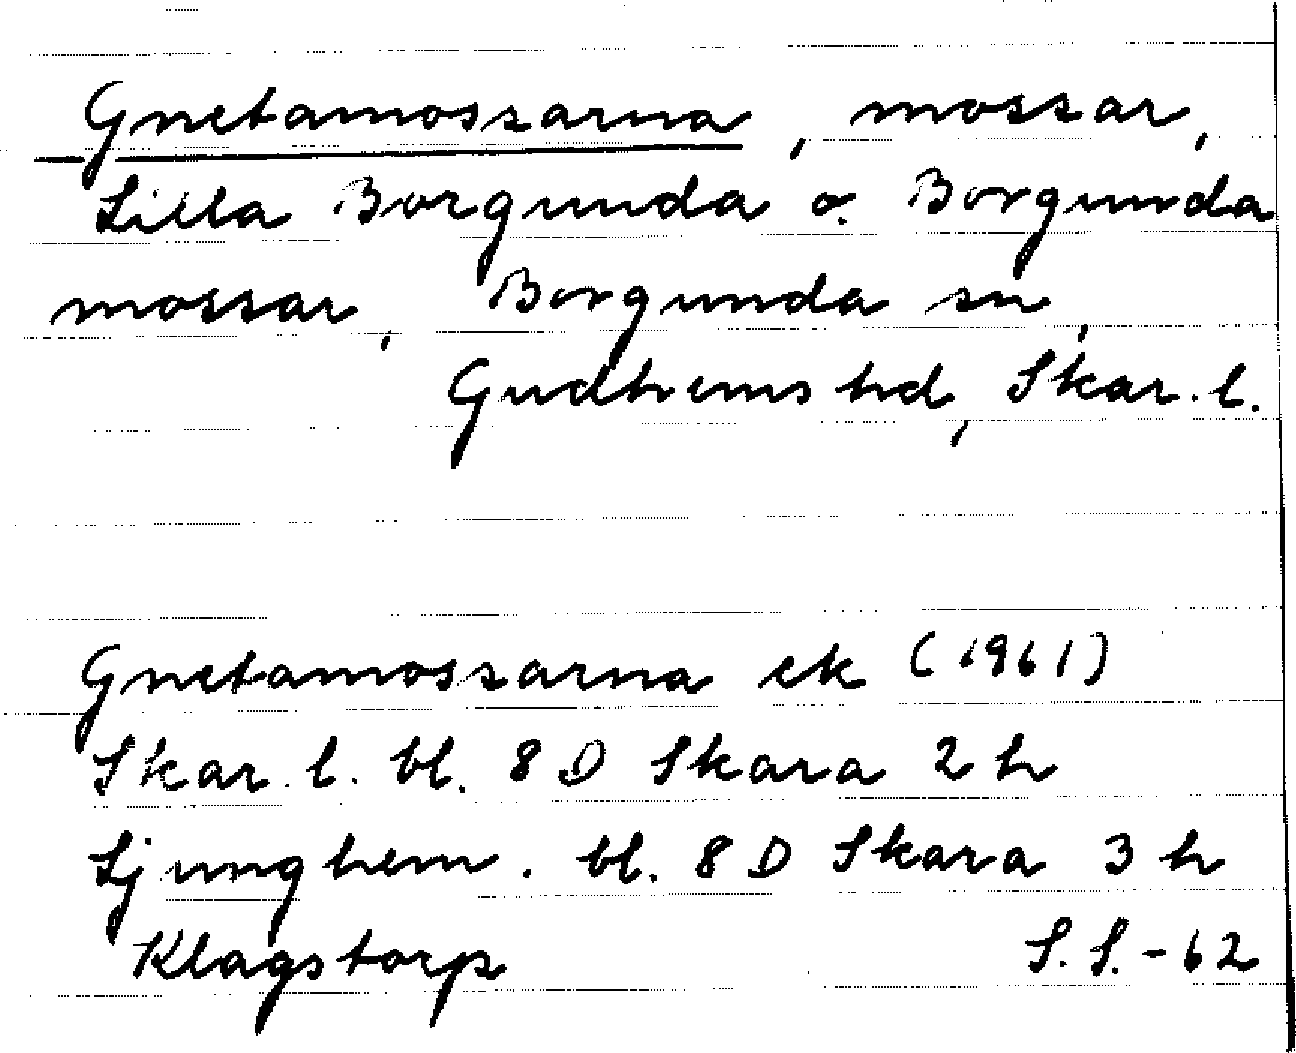 Gnetamossarna, mossar,
Lilla Borgunda o. Borgunda
mossar, Borgunda sn,
Gudhems hd, Skar. l.
Gnetamossarna ek (1961)
Skar. l. bl. 8 D Skara 2 h
Ljunghem. bl. 8 D Skara 3 h
Klagstorp S.S.-62